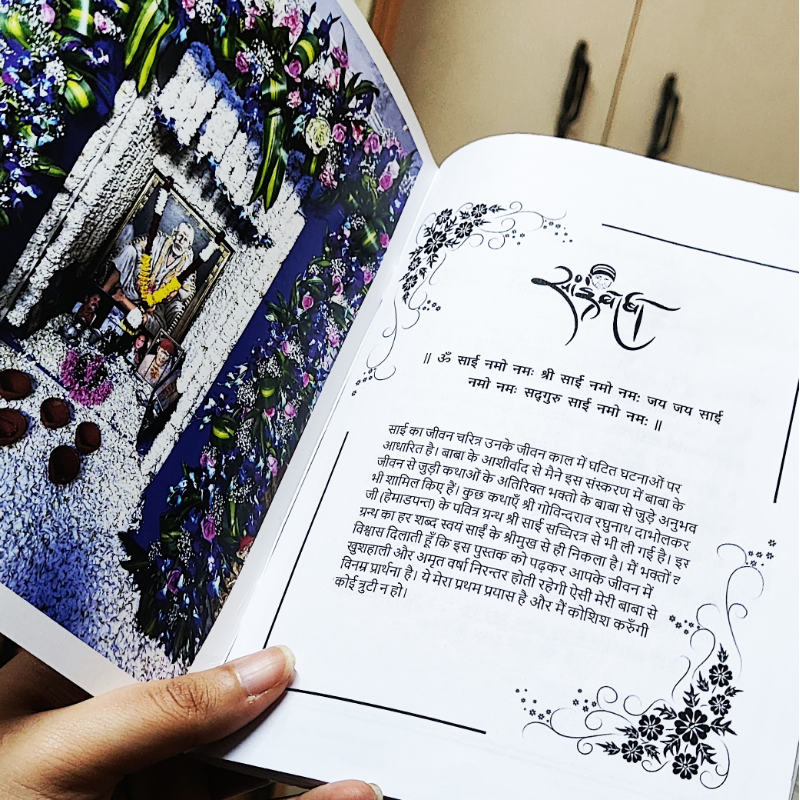 साईं बाबा
॥ ॐ साईं नमो नमः श्री साईं नमो नमः जय जय साईं
नमो नमः सद्गुरु साईं नमो नमः ॥
साईं का जीवन चरित्र उनके जीवन काल में घटित घटनाओं पर
आधारित है। बाबा के आशीर्वाद से मैने इस संस्करण में बाबा के
जीवन से जुड़ी कथाओं के अतिरिक्त भक्तो के बाबा से जुड़े अनुभव
भी शामिल किए हैं। कुछ कथाएँ श्री गोविन्दराव रघुनाथ दाभोलकर
जी (हेमाडपन्त) के पवित्र ग्रन्थ श्री साई सच्चिरत्र से भी ली गई है। इस
ग्रन्थ का हर शब्द स्वयं साईं के श्रीमुख से ही निकला है। मैं भक्तों
विश्वास दिलाती हूँ कि इस पुस्तक को पढ़कर आपके जीवन में
खुशहाली और अमृत वर्षा निरन्तर होती रहेगी ऐसी मेरी बाबा से
विनम्र प्रार्थना है। ये मेरा प्रथम प्रयास है और मैं कोशिश करुँगी
कोई त्रुटी न हो।